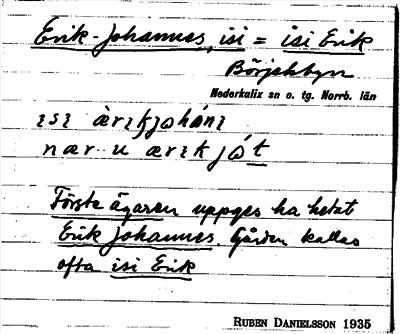 Erik-Johannes, isi = isi Erik
Börjelsbyn
Nederkalix sn o. tg. Norrb. län
ɪsɪ ærɪkjohánɪ
nær u ærɪk jót
Förste ägaren uppges ha hetat
Erik Johannes. Gården kallas
ofta isi Erik
RUBEN DANIELSSON 1935